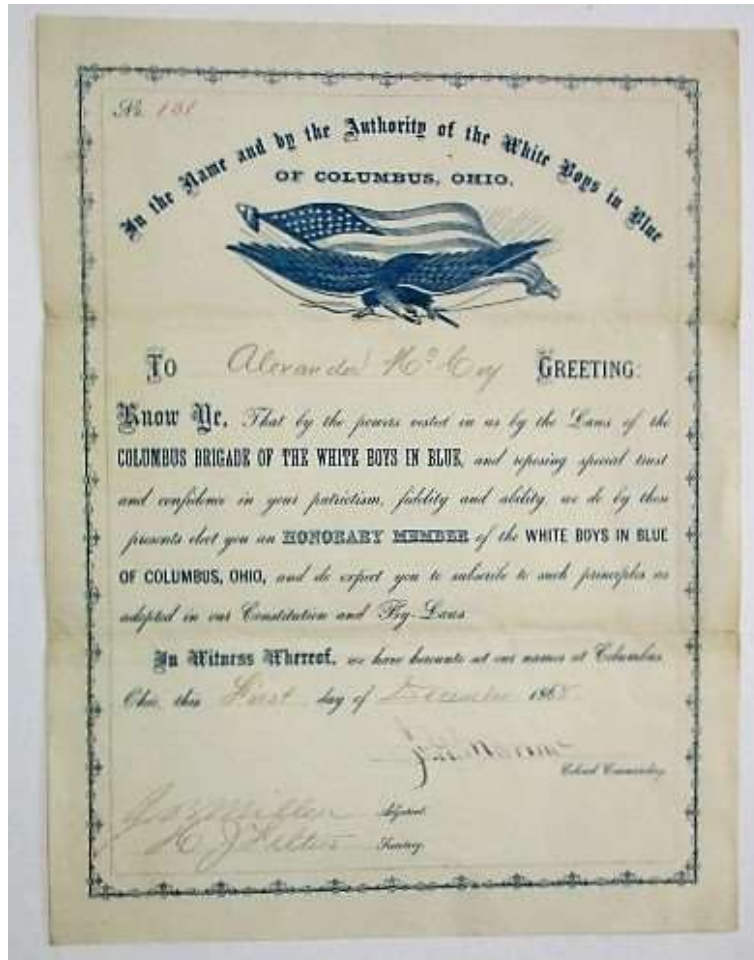 No. 181
In the Name and by the Authority of the White Boys in Blue
OF COLUMBUS, OHIO.
TO Alexander McCoy GREETING:
Know Ye, That by the powers vested in us by the Laws of the
COLUMBUS BRIGADE OF THE WHITE BOYS IN BLUE, and reposing special trust
and confidence in your patriotism, fidelity and ability, we do by these
presents elect you an HONORARY MEMBER of the WHITE BOYS IN BLUE
OF COLUMBUS, OHIO, and do expect you to subscribe to such principles as
adopted in our Constitution and By-Laws.
In Witness Whereof, we have hereunto set our names at Columbus,
Ohio, this First day of December 1868.
Colonel Commanding.
Miller Adjutant.
H. J. Secretary.